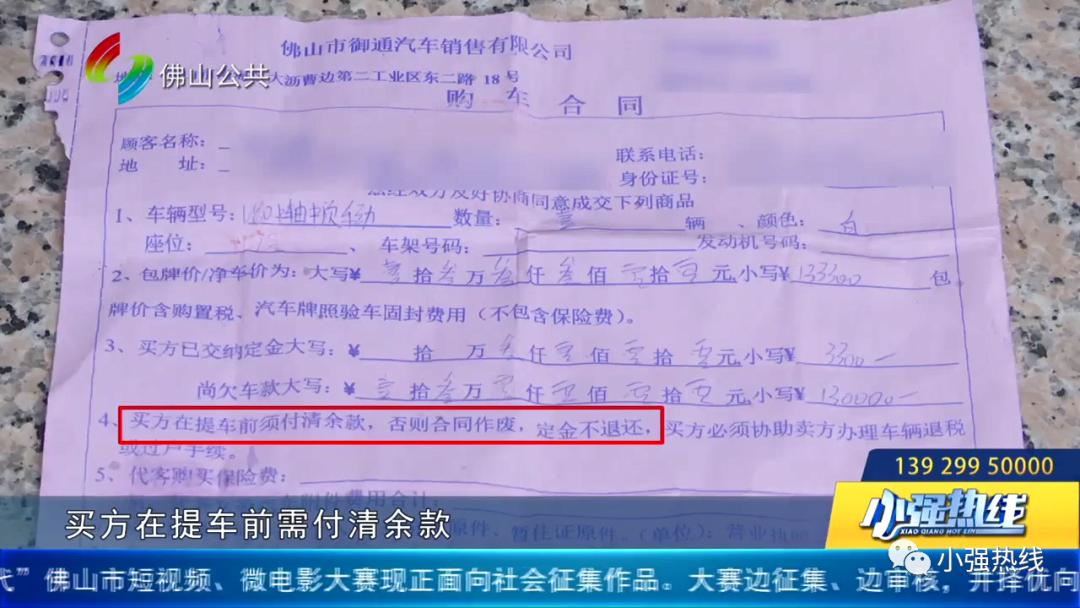 佛山市御通汽车销售有限公司
佛山公共
大沥曹边第二工业区东二路18号
购车合同
顾客名称：
联系电话：
地 址：
身份证号：
双方友好协商同意成交下列商品
1、车辆型号： 数量：壹 辆、颜色：白
座位： 、车架号码： 发动机号码：
2、包牌价/净车价为：大写¥壹拾叁万叁仟叁佰零拾零元小写¥133300 包
牌价含购置税、汽车牌照验车固封费用（不包含保险费）。
3、买方已交纳定金大写：¥ 拾 万叁仟零佰零拾零元小写¥3300
尚欠车款大写：¥壹拾叁万零仟零佰零拾零元小写¥130000
4、买方在提车前须付清余款，否则合同作废，定金不退还，买方必须协助卖方办理车辆退税
或过户手续。
5、代客购买保险费：
139 299 50000
小强热线
XIAO QIANG HOT LINE
买方在提车前需付清余款
小强热线
代”佛山市短视频、微电影大赛现正面向社会征集作品。大赛边征集、边审核，并择优向